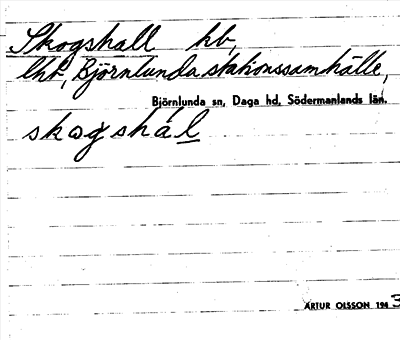 Skogshall hb,
lht, Björnlunda stationssamhälle,
Björnlunda sn, Daga hd, Södermanlands län.
skogshal
ARTUR OLSSON 1943